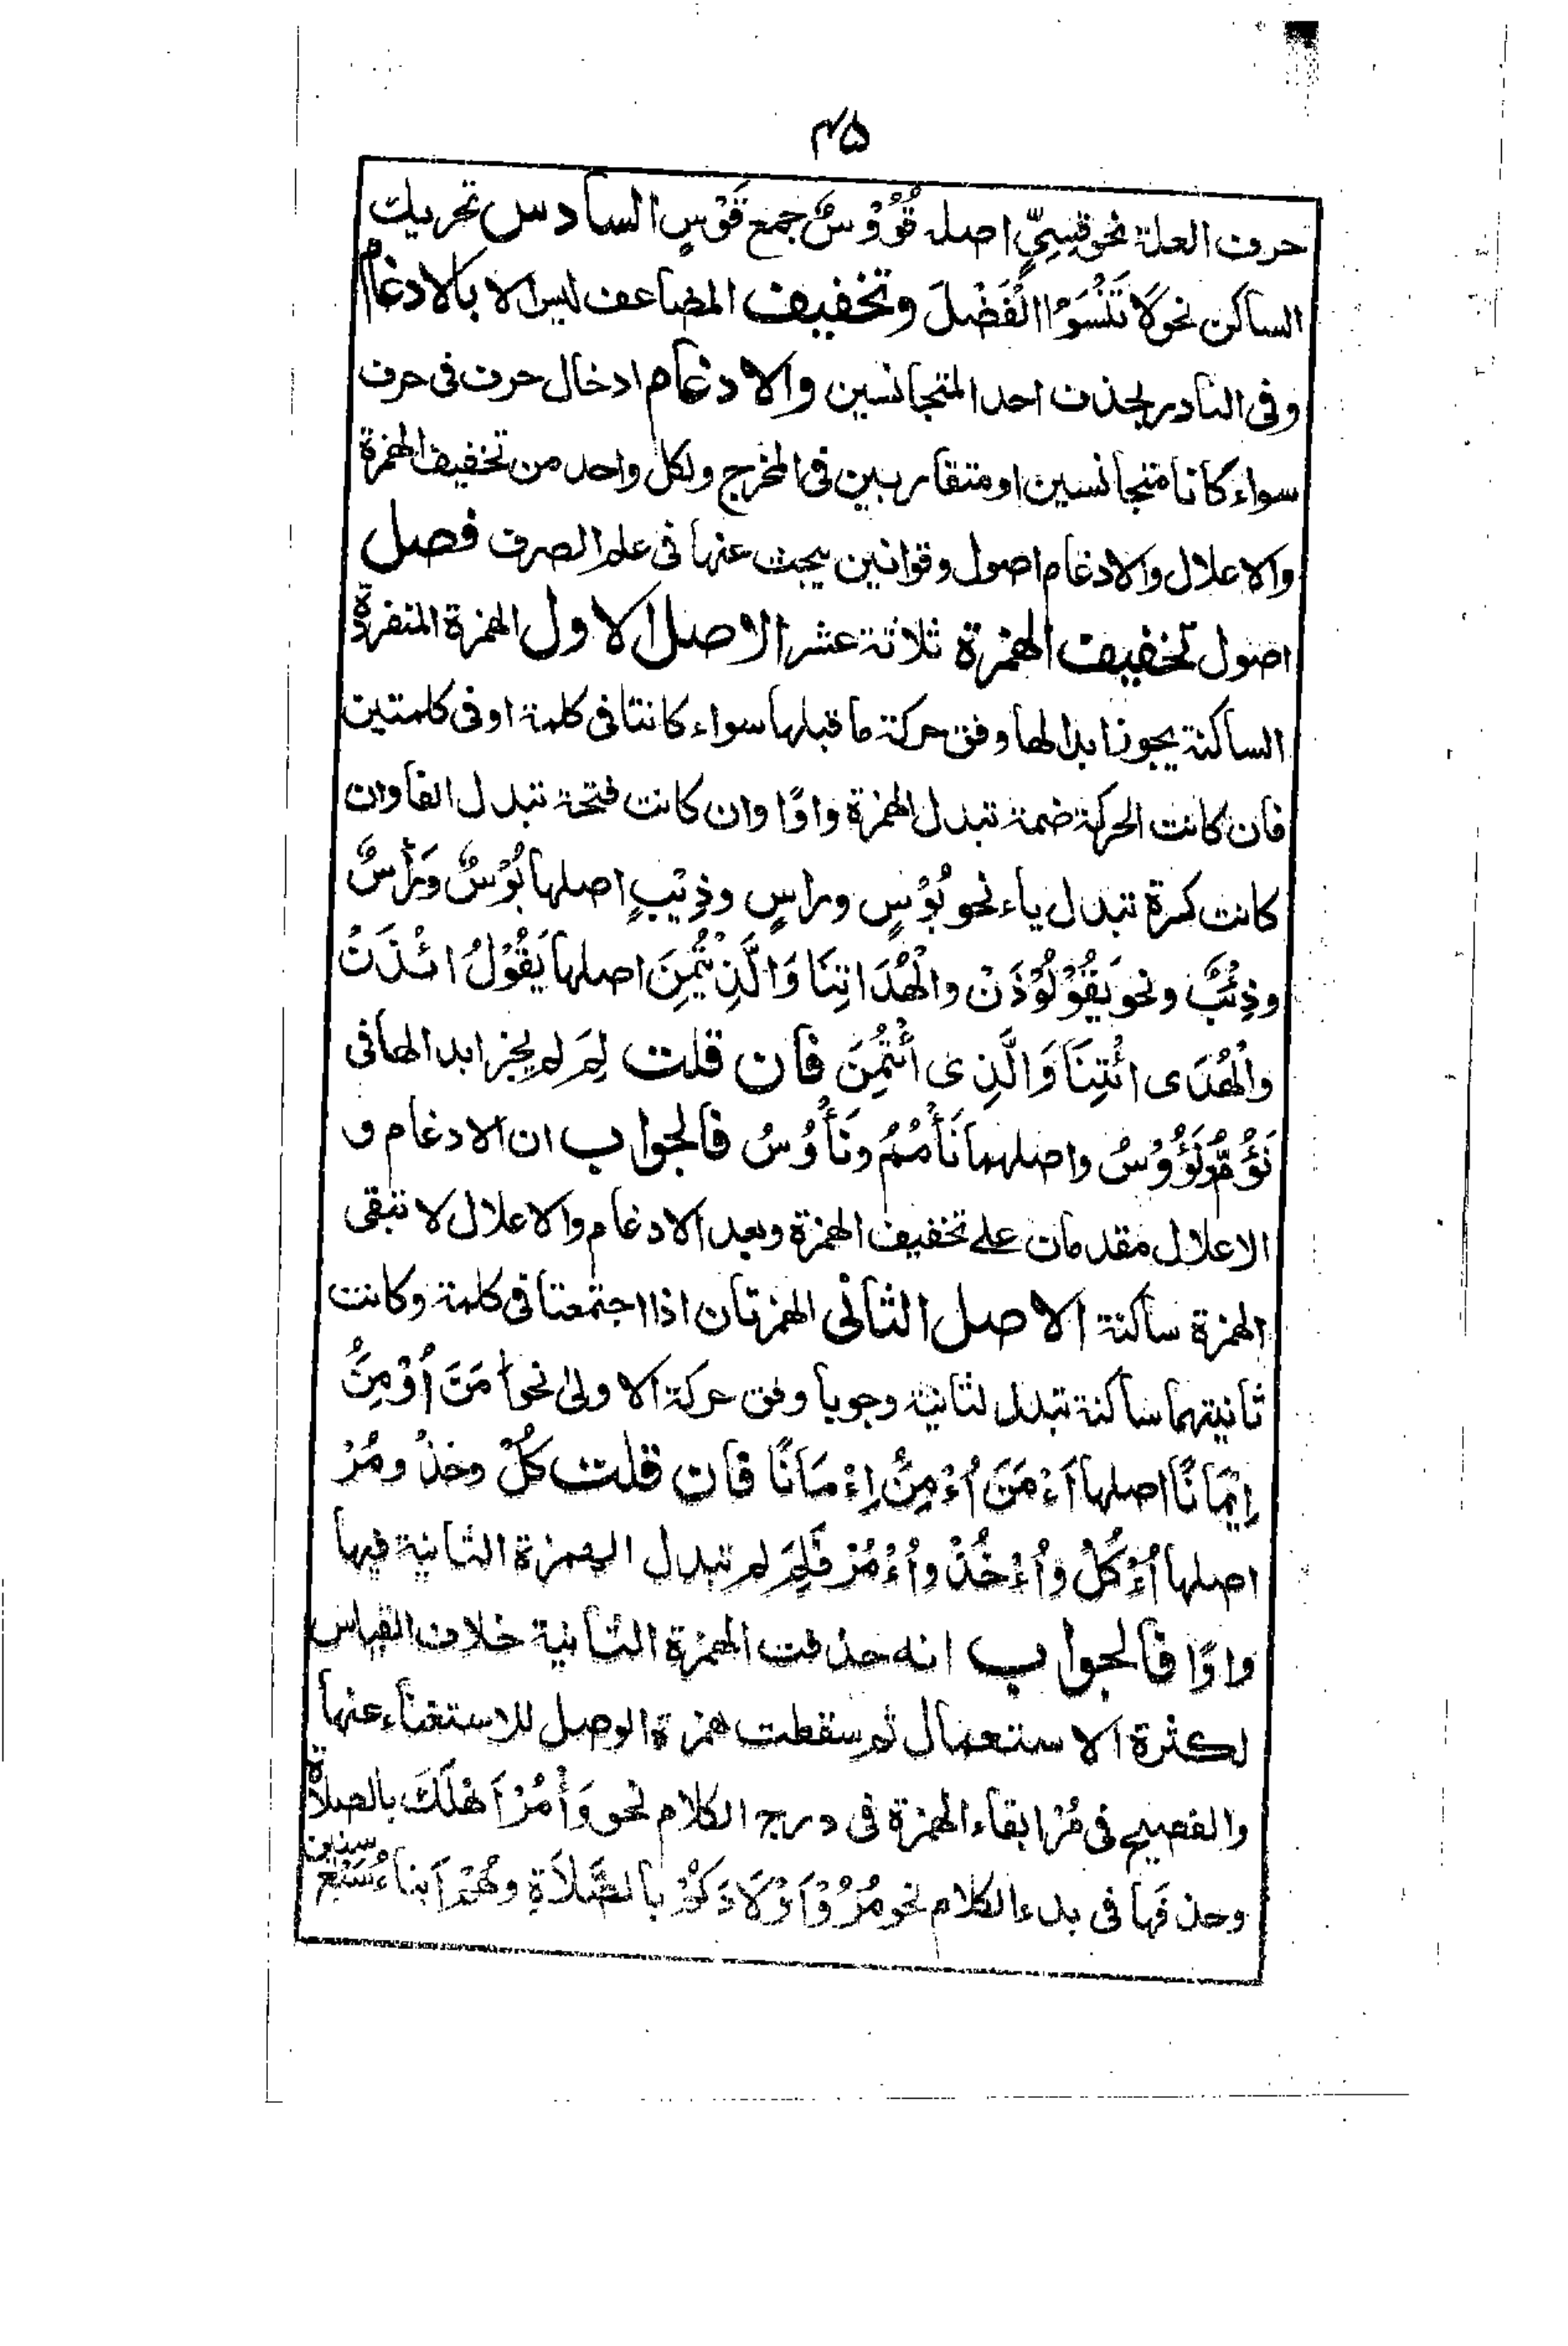 ۴۵
حرف العلة نحو قِسِيٍّ اصله قُوُوْسٌ جمع قَوْسٍ السادس تحريك
الساكن نحو لَا تَنْسَوُا الْفَضْلَ وتخفيف المضاعف ليس الا بالادغام
وفى النادر بحذف احد المتجانسين والادغام ادخال حرف فى حرف
سواء كانا متجانسين او متقاربين فى المخرج ولكل واحد من تخفيف الهمزة
والاعلال والادغام اصول وقوانين يبحث عنها فى علم الصرف فصل
اصول تخفيف الهمزة ثلاثة عشر الاصل الاول الهمزة المنفردة
الساكنة يجوز ابدالها وفق حركة ما قبلها سواء كانتا فى كلمة او فى كلمتين
فان كانت الحركة ضمة تبدل الهمزة واوًا وان كانت فتحة تبدل الفا وان
كانت كسرة تبدل ياء نحو بُوْسٍ وراسٍ وذِيْبٍ اصلها بُؤْسٌ وَرَأْسٌ
وذِئْبٌ ونحو يَقُوْلُوْذَنْ والْهُدَاتِنَا وَالَّذِيْتُمِنَ اصلها يَقُوْلُ ائْذَنْ
والْهُدَى ائْتِنَا وَالَّذِى أْتُمِنَ فان قلت لِمَ لم يجز ابدالها فى
نَؤُمُّ ونَؤُوْسُ واصلهما نَأْمُمُ ونَأْوُسُ فالجواب ان الادغام و
الاعلال مقدمان على تخفيف الهمزة وبعد الادغام والاعلال لا تبقى
الهمزة ساكنة الاصل الثانى الهمزتان اذا اجتمعتا فى كلمة وكانت
ثانيتهما ساكنة تبدل لثانية وجوبا وفق حركة الاولى نحو اٰمَنَ اُوْمِنُ
اِيْمَانًا اصلها اَءْمَنَ اُءْمِنُ اِءْمَانًا فان قلت كُلْ وخذْ ومُرْ
اصلها اُءْكُلْ واُءْخُذْ واُءْمُرْ فَلِمَ لم تبدل الهمزة الثانية فيها
واوًا فالجواب انه حذفت الهمزة الثانية خلاف القياس
لكثرة الاستعمال ثم سقطت همزة الوصل للاستغناء عنها
والفصيح فى مُرْ ابقاء الهمزة فى درج الكلام نحو وَأْمُرْ اَهْلَكَ بالصلاة
وحذفها فى بدء الكلام نحو مُرُوْا اَوْلَادَكُمْ بالصَّلَاةِ وهُمْ اَبناءُ سَبْع سنين